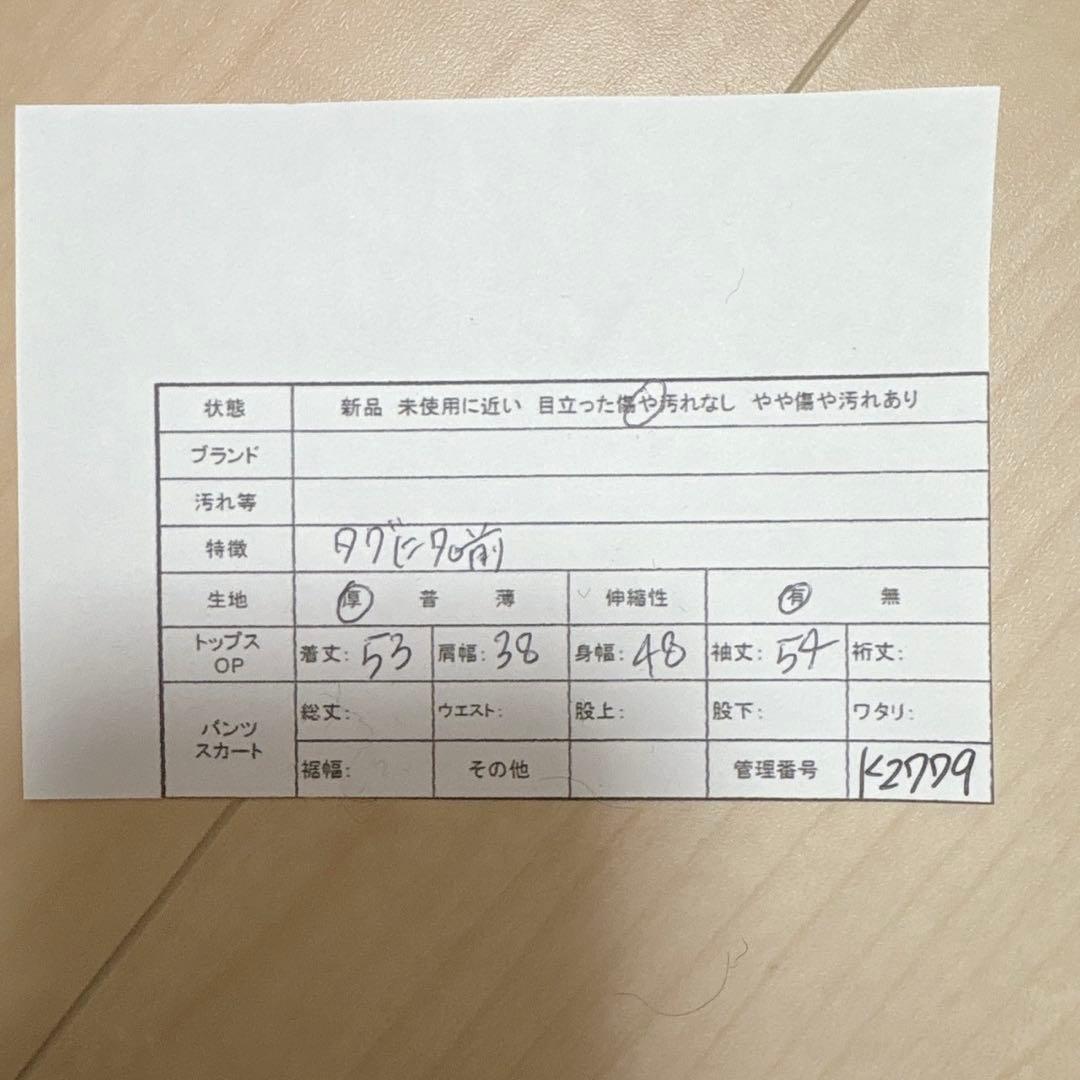 状態 新品 未使用に近い 目立った傷や汚れなし やや傷や汚れあり
ブランド
汚れ等
特徴 タグに名前
生地 厚 普 薄 伸縮性 有 無
トップス OP 着丈: 53 肩幅: 38 身幅: 48 袖丈: 54 裄丈:
パンツ スカート 総丈: ウエスト: 股上: 股下: ワタリ:
裾幅: その他 管理番号 K2779